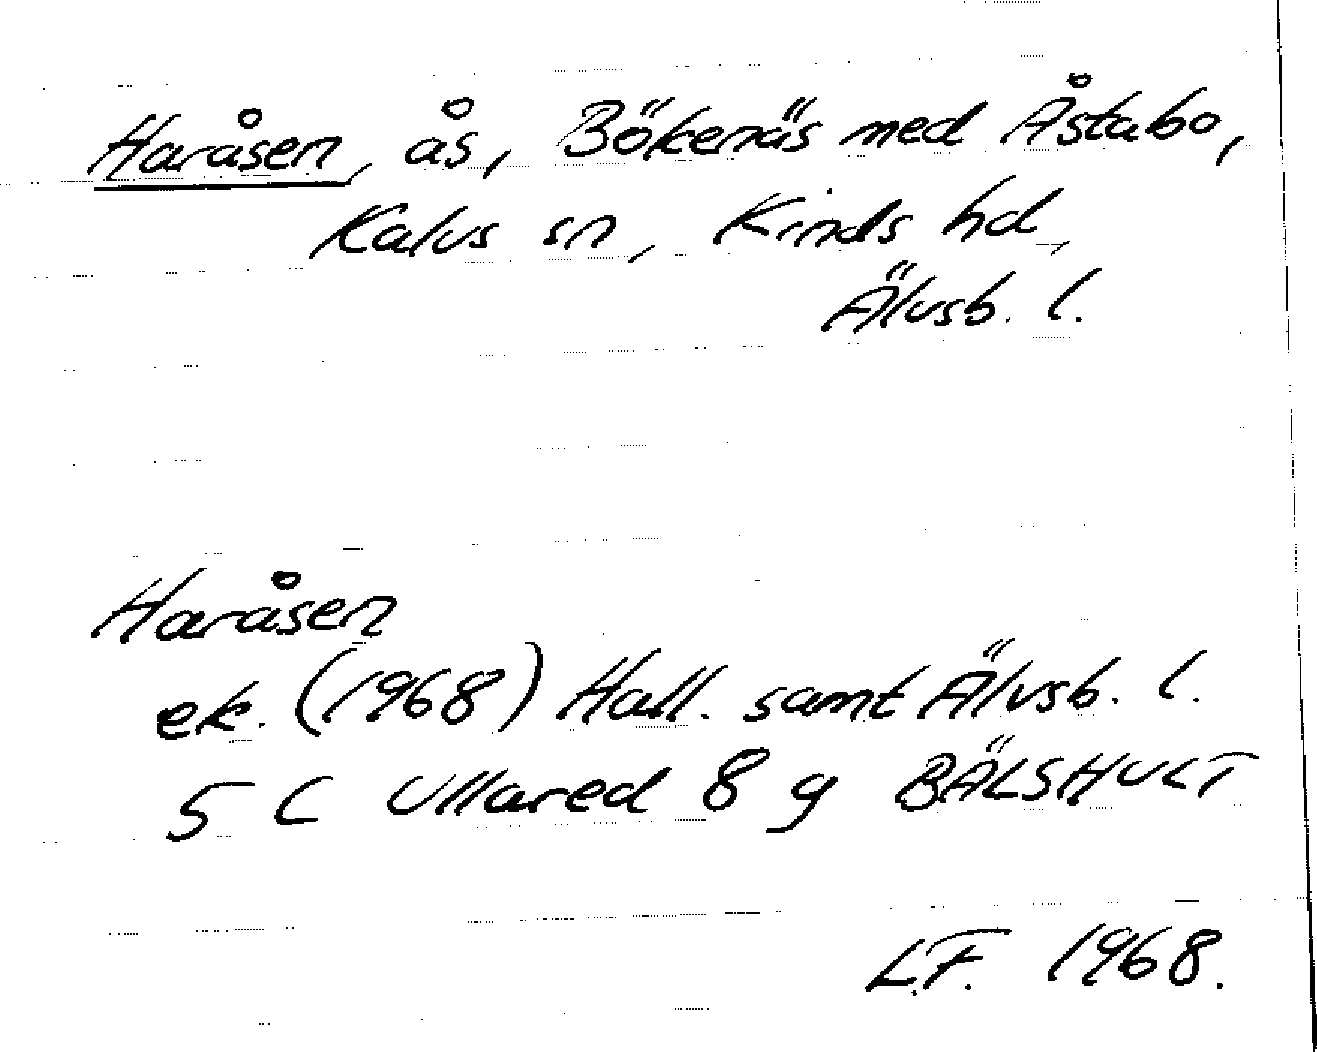 Haråsen, ås, Bökenäs med Åstabo,
Kalvs sn, Kinds hd,
Älvsb. l.
Haråsen
ek. (1968) Hall. samt Älvsb. l.
5 C Ullared 8 g BÄLSHULT
L.F. 1968.